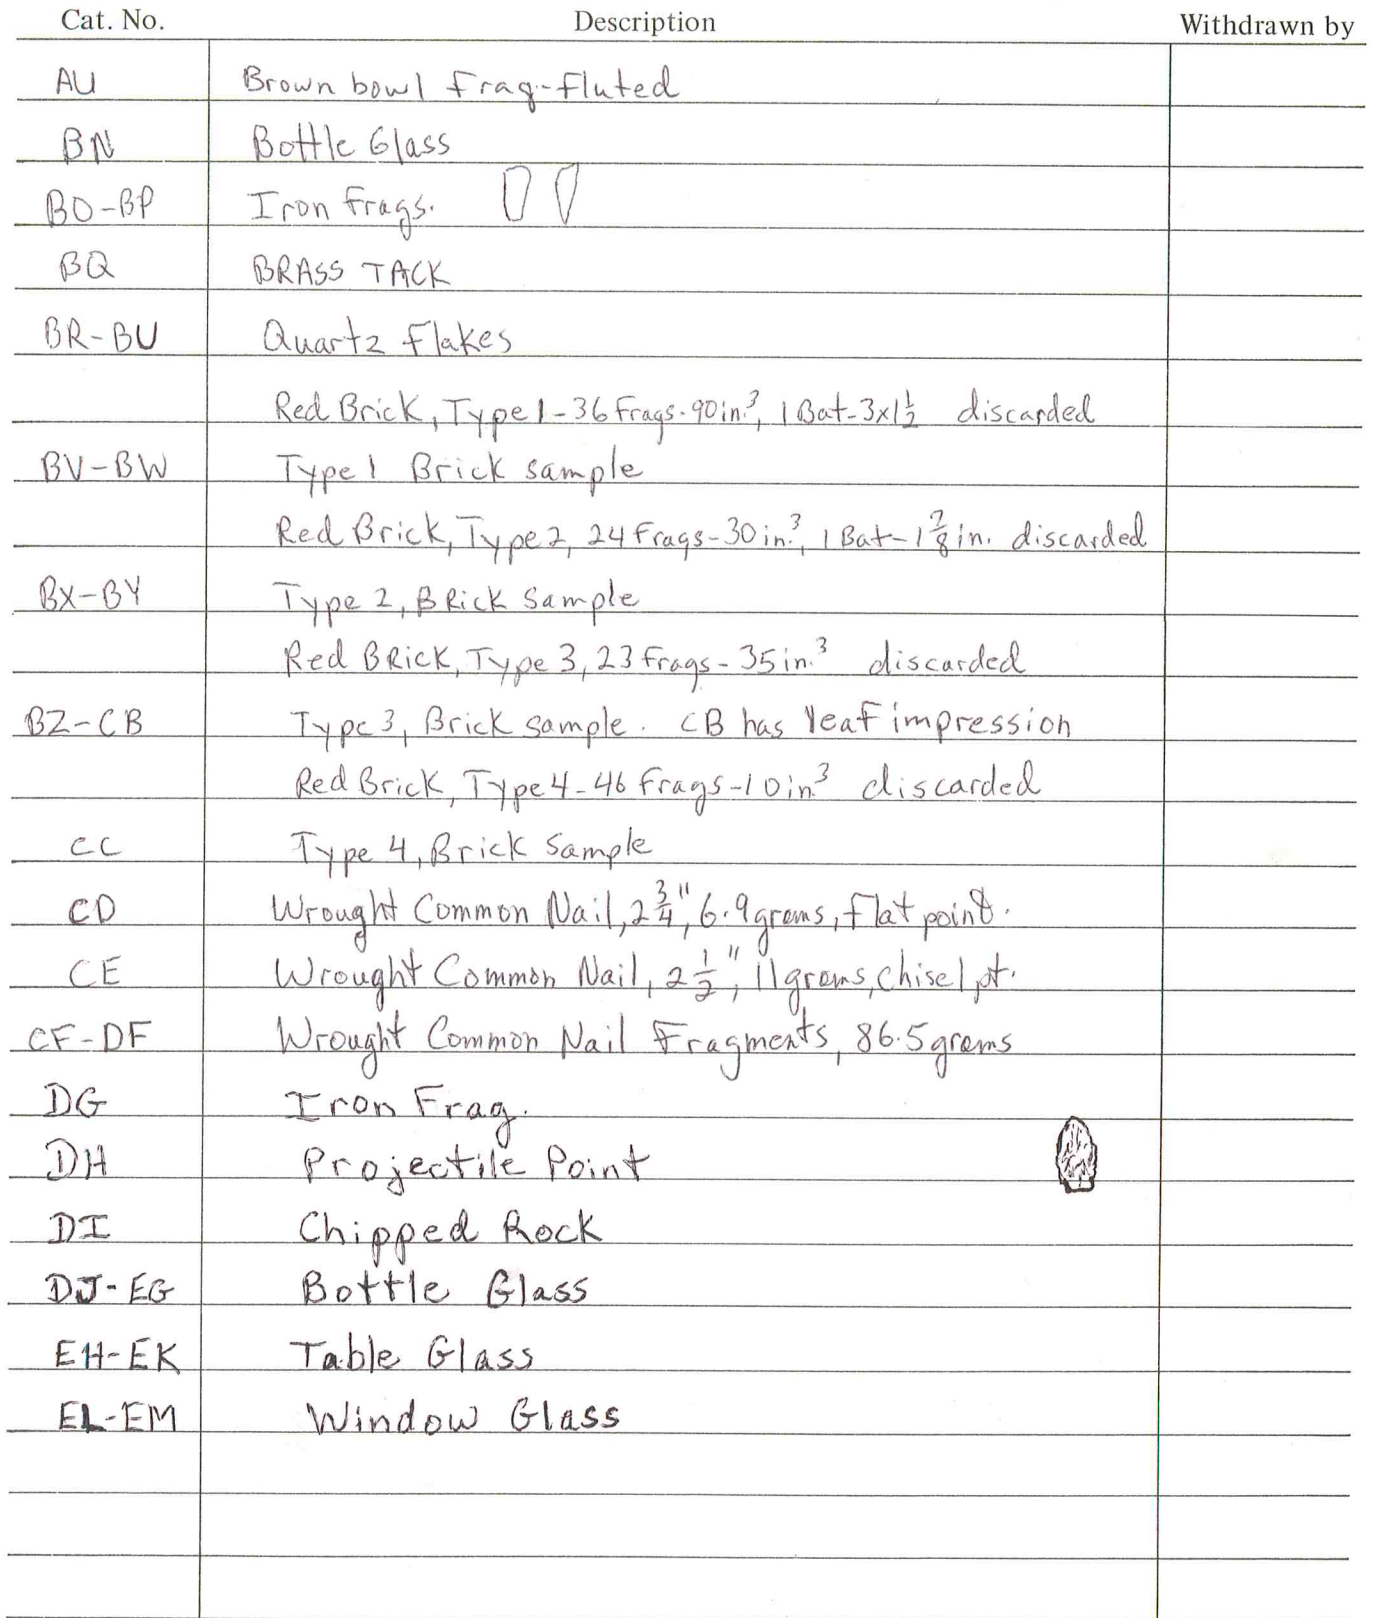 Cat. No. Description Withdrawn by
AU Brown bowl frag-fluted
BN Bottle Glass
BO-BP Iron frags.
BQ BRASS TACK
BR-BU Quartz flakes
Red Brick, Type 1-36 frags-90in.³, 1 Bat-3x1½ discarded
BV-BW Type 1 Brick sample
Red Brick, Type 2, 24 frags-30in.³, 1 Bat-1⅞in. discarded
BX-BY Type 2, BRick Sample
Red BRICK, Type 3, 23 frags-35in.³ discarded
BZ-CB Type 3, Brick sample. CB has leaf impression
Red Brick, Type 4-46 frags-10in³ discarded
CC Type 4, Brick Sample
CD Wrought Common Nail, 2¾", 6.9grams, flat point.
CE Wrought Common Nail, 2½", 11grams, chisel pt.
CF-DF Wrought Common Nail Fragments, 86.5grams
DG Iron Frag.
DH Projectile Point
DI Chipped Rock
DJ-EG Bottle Glass
EH-EK Table Glass
EL-EM Window Glass